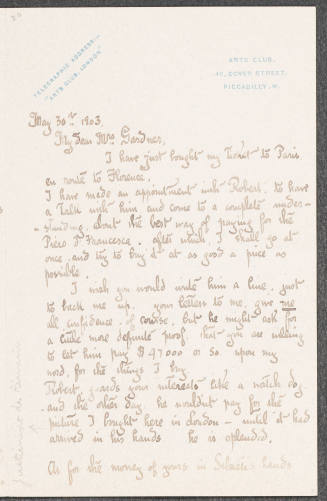 TELEGRAPHIC ADDRESS:—
"ARTS CLUB, LONDON"
ARTS CLUB,
40, DOVER STREET,
PICCADILLY, W.
May 30th 1903
My dear Mrs Gardner,
I have just bought my ticket to Paris
en route to Florence.
I have made an appointment with Robert to have
a talk with him and come to a complete under-
-standing, about the best way of paying for the
Piero d Francesca. after which, I shall go at
once, and try to buy it at as good a price as
possible.
I wish you would write him a line, just
to back me up. your letters to me, give me
all confidence, of course, but he might ask for
a little more definite proof, that you are willing
to let him pay $47000 or so, upon my
word, for the things I buy.
Robert, guards your interests like a watch dog.
and the other day, he wouldnt pay for the
picture I bought here in London — until it had
arrived in his hands. he is splendid.
As for the money of yours in hands